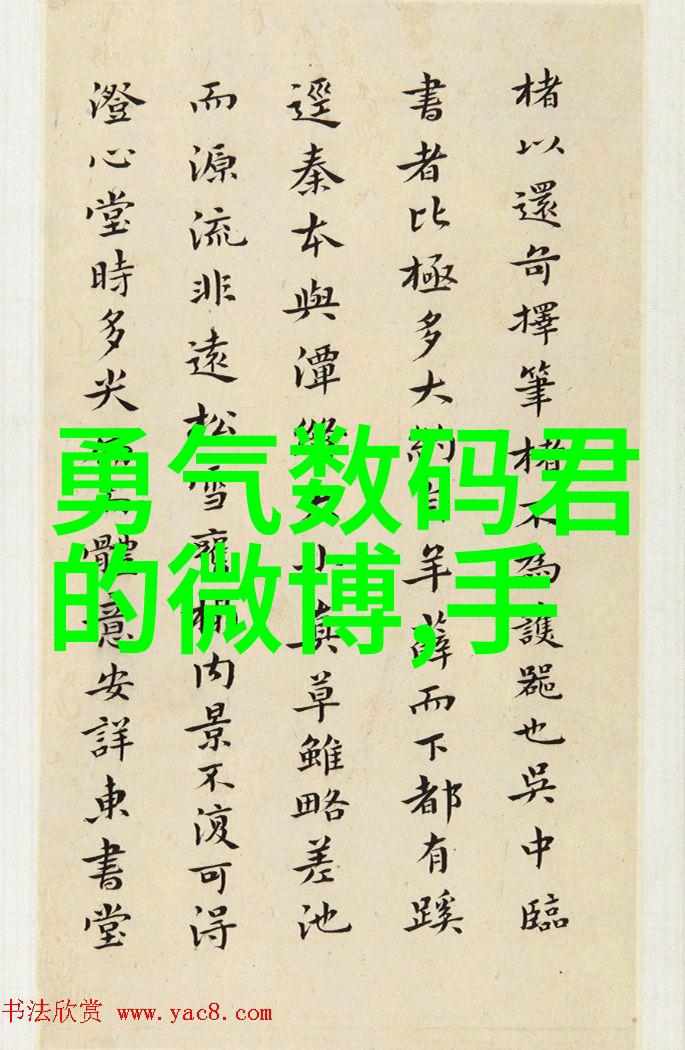 楮以還奇擇筆楮不為護噐也吳中臨
書者比極多大約自羊薛而下都有蹊
逕秦本與潭小真草雖略差池
而源流非遠松雪内景不復可得
澄心堂時多尖體意安詳東書堂
勇气数码君
的微博,手
书法欣赏 www.yac8.com